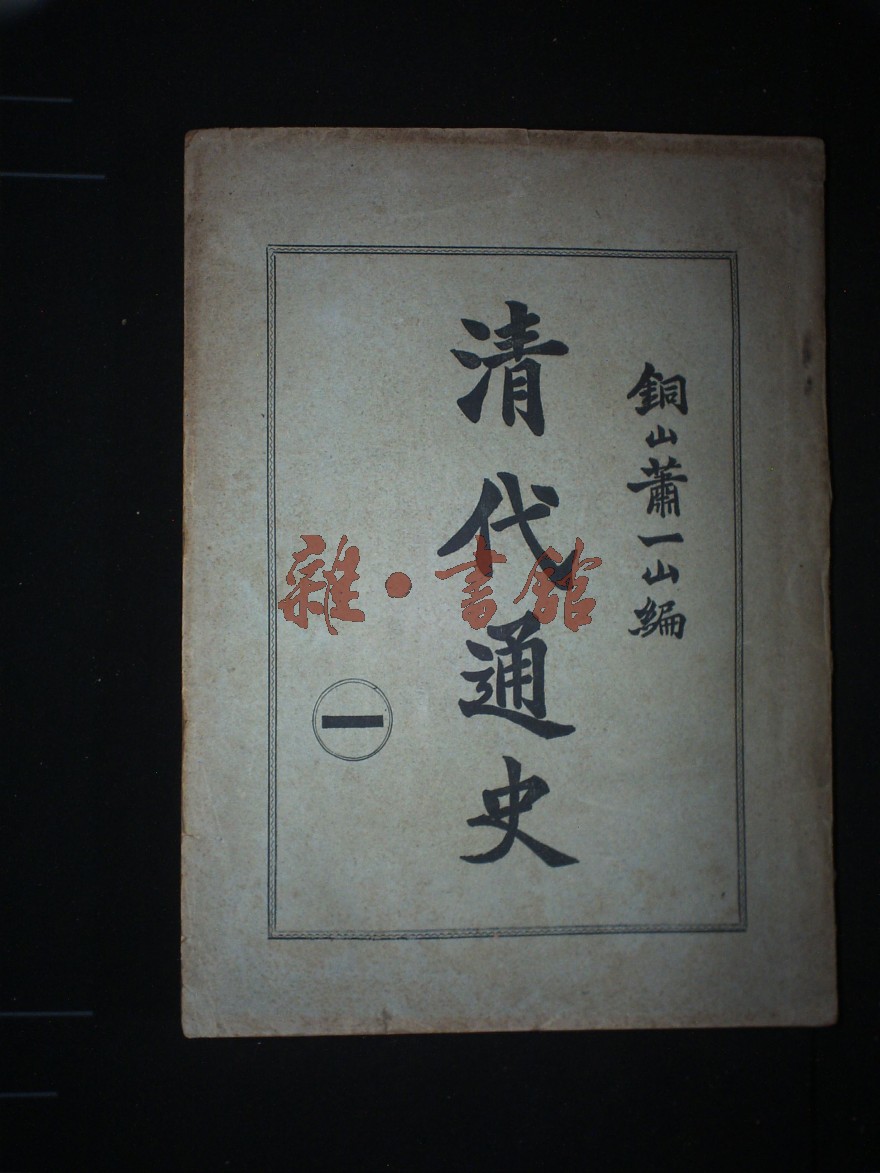 銅山蕭一山編
清代通史
一
雜·書館